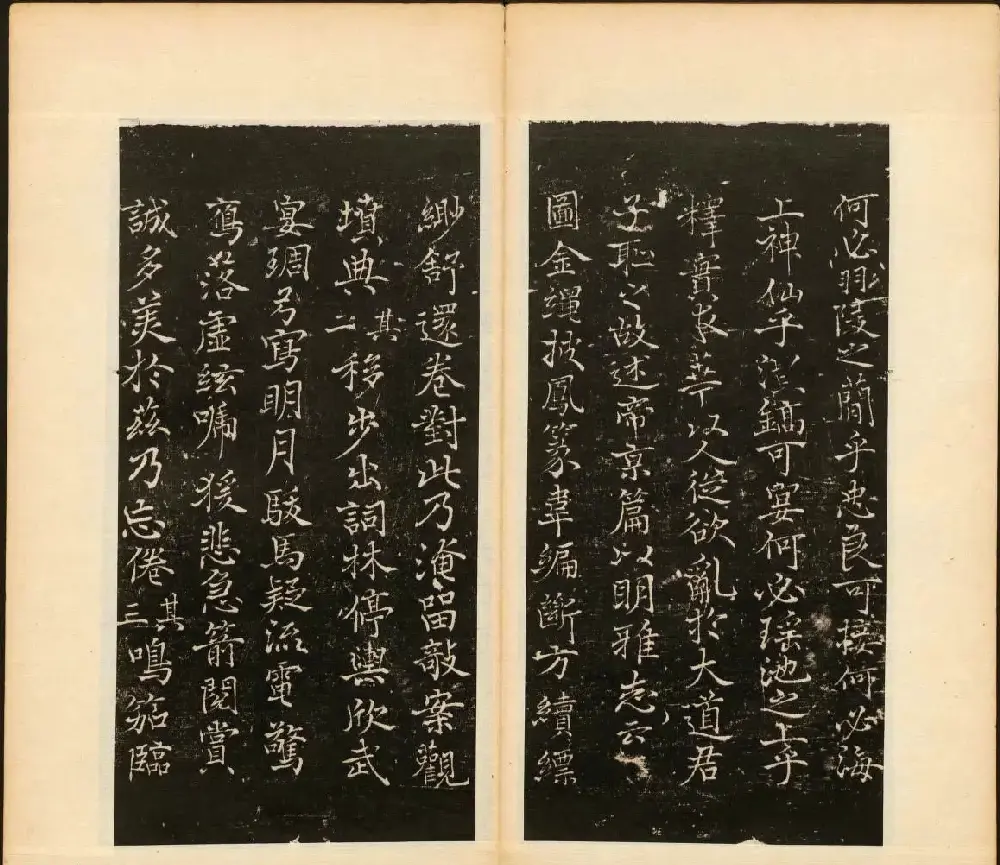 何必陵之簡乎忠良可接何必海
上神仙乎灃鎬可宴何必瑤池之上乎
釋實求華以人從欲亂於大道君
子恥之故述帝京篇以明雅志云
圖金繩披鳳篆韋編斷方續縹
緲舒還卷對此乃淹留敧案觀
墳典其二移步出詞林停輿欣武
宴琱弓寫明月駿馬疑流電驚
鴈落虛弦啼猨悲急箭閱賞
誠多美於茲乃忘倦其三鳴笳臨